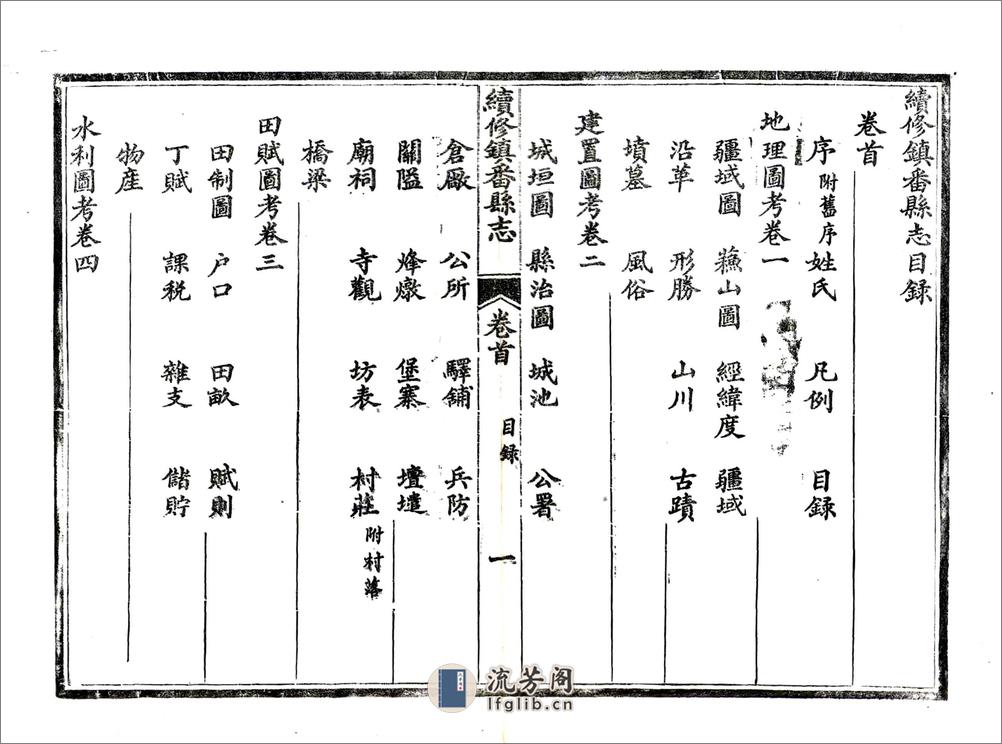 續修鎮番縣志目録
卷首
序附舊序姓氏 凡例 目録
地理圖考卷一
疆域圖 蘓山圖 經緯度 疆域
沿革 形勝 山川 古蹟
墳墓 風俗
建置圖考卷二
城垣圖 縣治圖 城池 公署
續修鎮番縣志 卷首 目録 一
倉廒 公所 驛舖 兵防
關隘 烽燉 堡寨 壇壝
廟祠 寺觀 坊表 村莊附村落
橋梁
田賦圖考卷三
田制圖 户口 田畝 賦則
丁賦 課税 雜支 儲貯
物産
水利圖考卷四
流芳阁
lfglib.cn